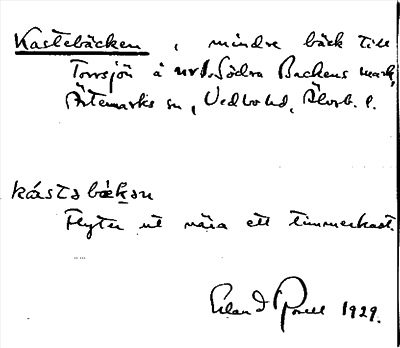 Kastebäcken, mindre bäck till
Torrsjön å nr 1. Södra Backens mark,
Ärtemarks sn, Vedbo hd, Älvsb. l.
kástəbäkən
Flyter ut nära ett timmerkast.
Erland 1929.